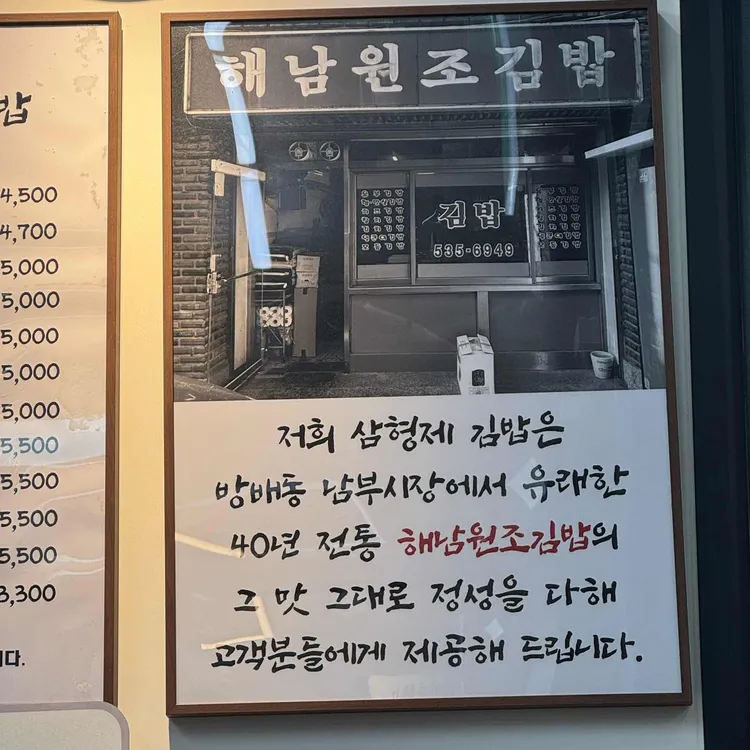 밥
4,500
4,700
5,000
5,000
5,000
5,000
5,000
5,500
5,500
5,500
5,500
3,300
다.
해남원조김밥
김밥
535-6949
883
저희 삼형제 김밥은
방배동 남부시장에서 유래한
40년 전통 해남원조김밥의
그 맛 그대로 정성을 다해
고객분들에게 제공해 드립니다.